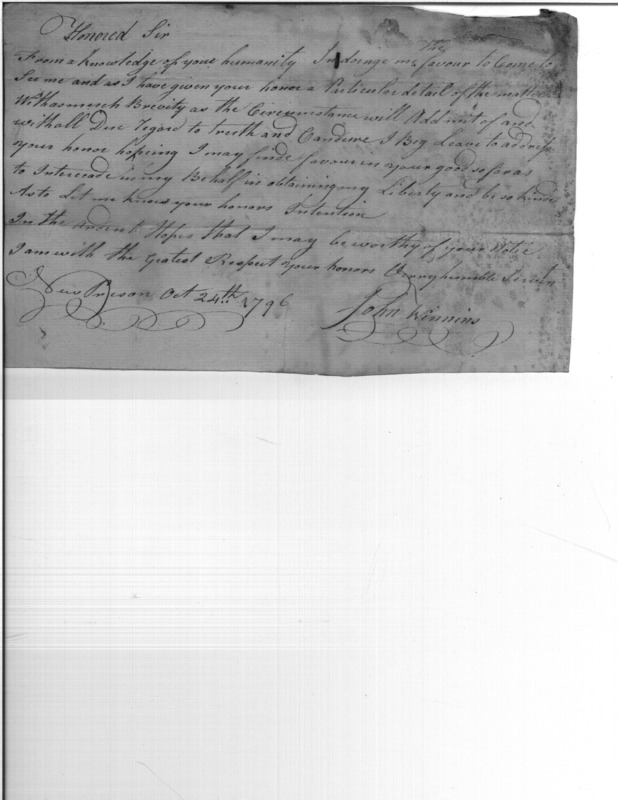 Honored Sir
From a knowledge of your humanity In doinge me the favour to Come to
See me and as I have given your honor a Particular detail of the matter
With as much Brevity as the Circumstance will Addmit of and
with all Due regard to Truth and Candure I Beg Leave to address
your honor hopeing I may finde favour in your good so far as
to Interceade in my Behalf in obtaining my Liberty and be so kinde
As to Let me know your honors Intention
In the Ardent Hopes that I may be worthy of your Notice
I am with the Gratest Respect your honors humble
New Prison Oct 24th 1796 John Winnins